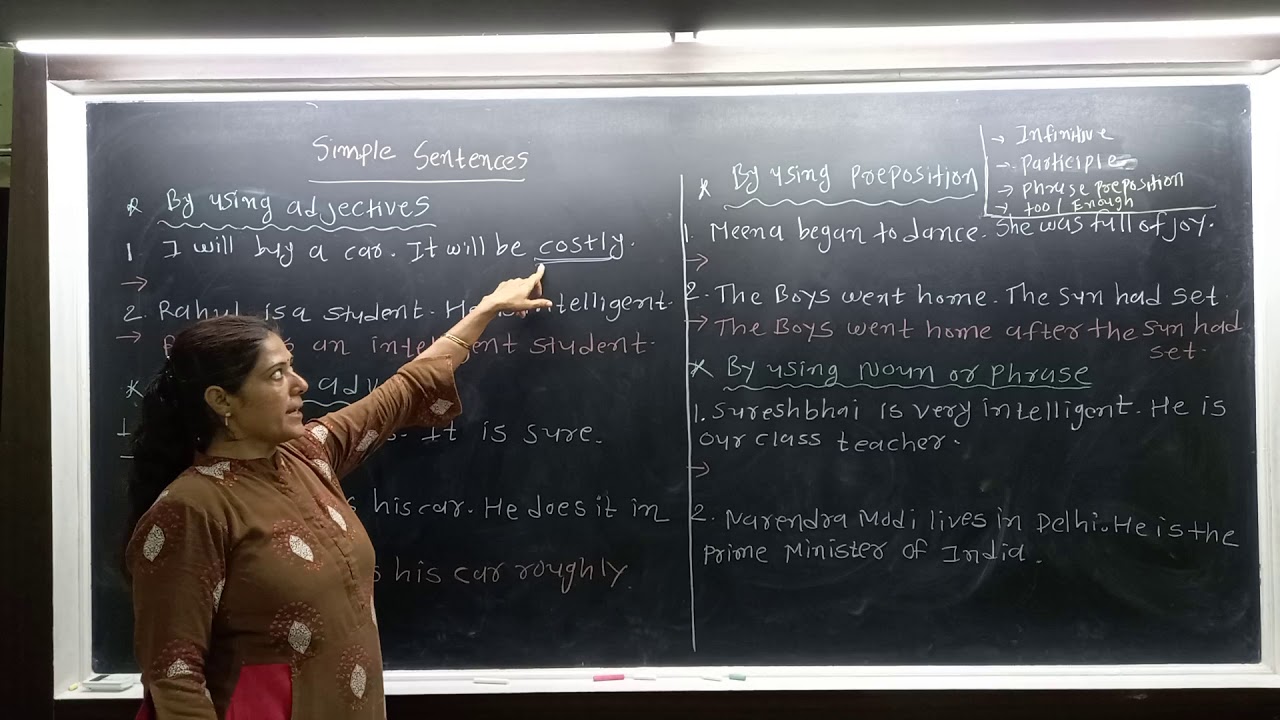 Simple Sentences
* By using adjectives
1. I will buy a car. It will be costly.
→
2. Rahul is a student. He is intelligent.
→ an intelligent student.
* adv
It is sure.
his car. He does it in
his car roughly.
* By using preposition
→ Infinitive
→ Participle
→ Phrase preposition
→ too / Enough
1. Meena began to dance. She was full of joy.
→
2. The Boys went home. The Sun had set.
→ The Boys went home after the Sun had
set.
* By using Noun or Phrase
1. Sureshbhai is very intelligent. He is
our class teacher.
→
2. Narendra Modi lives in Delhi. He is the
Prime Minister of India.